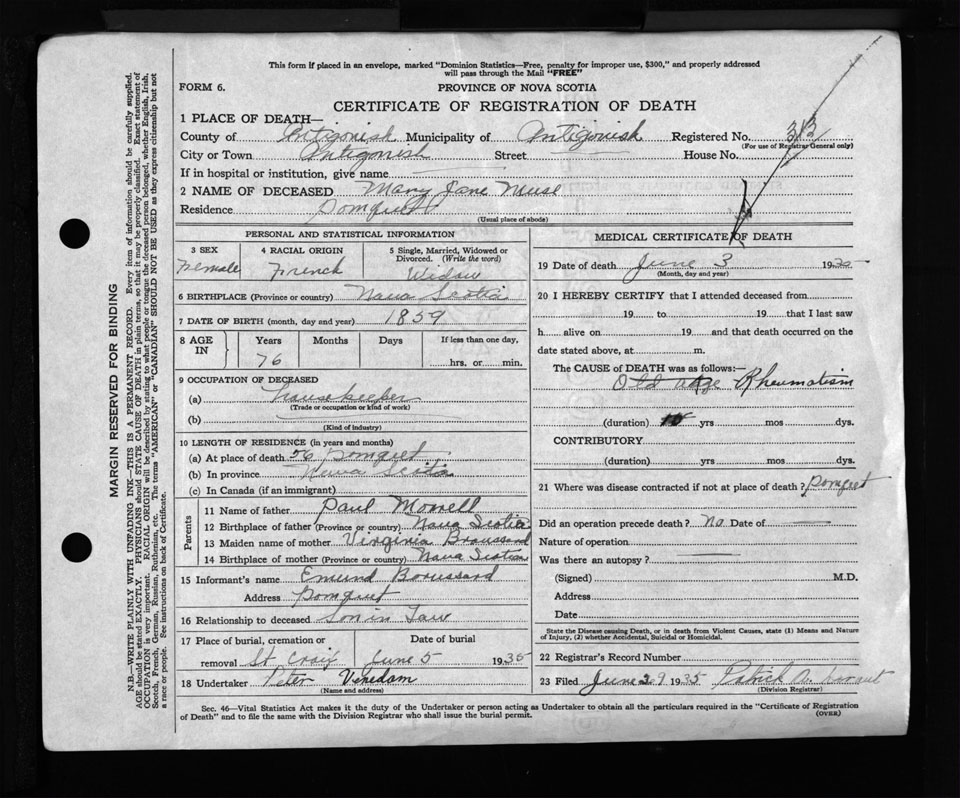 This form if placed in an envelope, marked "Dominion Statistics—Free, penalty for improper use, $300," and properly addressed
will pass through the Mail "FREE"
FORM 6.
PROVINCE OF NOVA SCOTIA
CERTIFICATE OF REGISTRATION OF DEATH
1 PLACE OF DEATH—
County of Antigonish Municipality of Antigonish Registered No. 313
(For use of Registrar General only)
City or Town Antigonish Street House No.
If in hospital or institution, give name
2 NAME OF DECEASED Mary Jane Muse
Residence Pomquet
(Usual place of abode)
PERSONAL AND STATISTICAL INFORMATION
3 SEX Female
4 RACIAL ORIGIN French
5 Single, Married, Widowed or Divorced. (Write the word) Widow
6 BIRTHPLACE (Province or country) Nova Scotia
7 DATE OF BIRTH (month, day and year) 1859
8 AGE IN Years Months Days If less than one day,
76 hrs. or min.
9 OCCUPATION OF DECEASED
(a) housekeeper
(Trade or occupation or kind of work)
(b)
(Kind of industry)
10 LENGTH OF RESIDENCE (in years and months)
(a) At place of death 76 Pomquet
(b) In province Nova Scotia
(c) In Canada (if an immigrant)
Parents
11 Name of father Paul
12 Birthplace of father (Province or country) Nova Scotia
13 Maiden name of mother Virginia Broussard
14 Birthplace of mother (Province or country) Nova Scotia
15 Informant's name Emund Borussard
Address Pomquet
16 Relationship to deceased Son in Law
17 Place of burial, cremation or Date of burial
removal St. Croix June 5 1935
18 Undertaker Peter Venedam
(Name and address)
MEDICAL CERTIFICATE OF DEATH
19 Date of death June 3 1935
(Month, day and year)
20 I HEREBY CERTIFY that I attended deceased from
19 to 19 that I last saw
h alive on 19 and that death occurred on the
date stated above, at m.
The CAUSE OF DEATH was as follows:—
Old age Rheumatism
(duration) 10 yrs mos dys.
CONTRIBUTORY
(duration) yrs mos dys.
21 Where was disease contracted if not at place of death? Pomquet
Did an operation precede death? no Date of
Nature of operation
Was there an autopsy?
(Signed) M.D.
Address
Date
State the Disease causing Death, or in death from Violent Causes, state (1) Means and Nature
of Injury, (2) whether Accidental, Suicidal or Homicidal.
22 Registrar's Record Number
23 Filed June 29 1935 Patrick
(Division Registrar)
Sec. 46—Vital Statistics Act makes it the duty of the Undertaker or person acting as Undertaker to obtain all the particulars required in the "Certificate of Registration
of Death" and to file the same with the Division Registrar who shall issue the burial permit. (OVER)
MARGIN RESERVED FOR BINDING
N.B.—WRITE PLAINLY WITH UNFADING INK—THIS IS A PERMANENT RECORD. Every item of information should be carefully supplied.
AGE should be stated EXACTLY. PHYSICIANS should STATE CAUSE OF DEATH in plain terms, so that it may be properly classified. Exact statement of
OCCUPATION is very important. RACIAL ORIGIN will be described by stating to what people or tongue the deceased person belonged, whether English, Irish,
Scotch, French, German, Russian, Ruthenian, etc. The terms "AMERICAN" or "CANADIAN" SHOULD NOT BE USED as they express citizenship but not
a race or people. See instructions on back of Certificate.